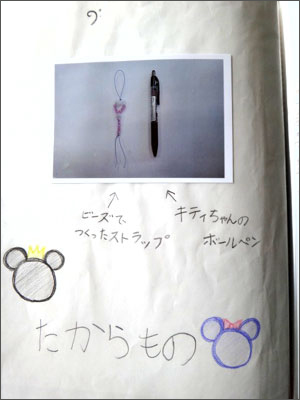 で
ビーズで
つくったストラップ
キティちゃんの
ボールペン
たからもの